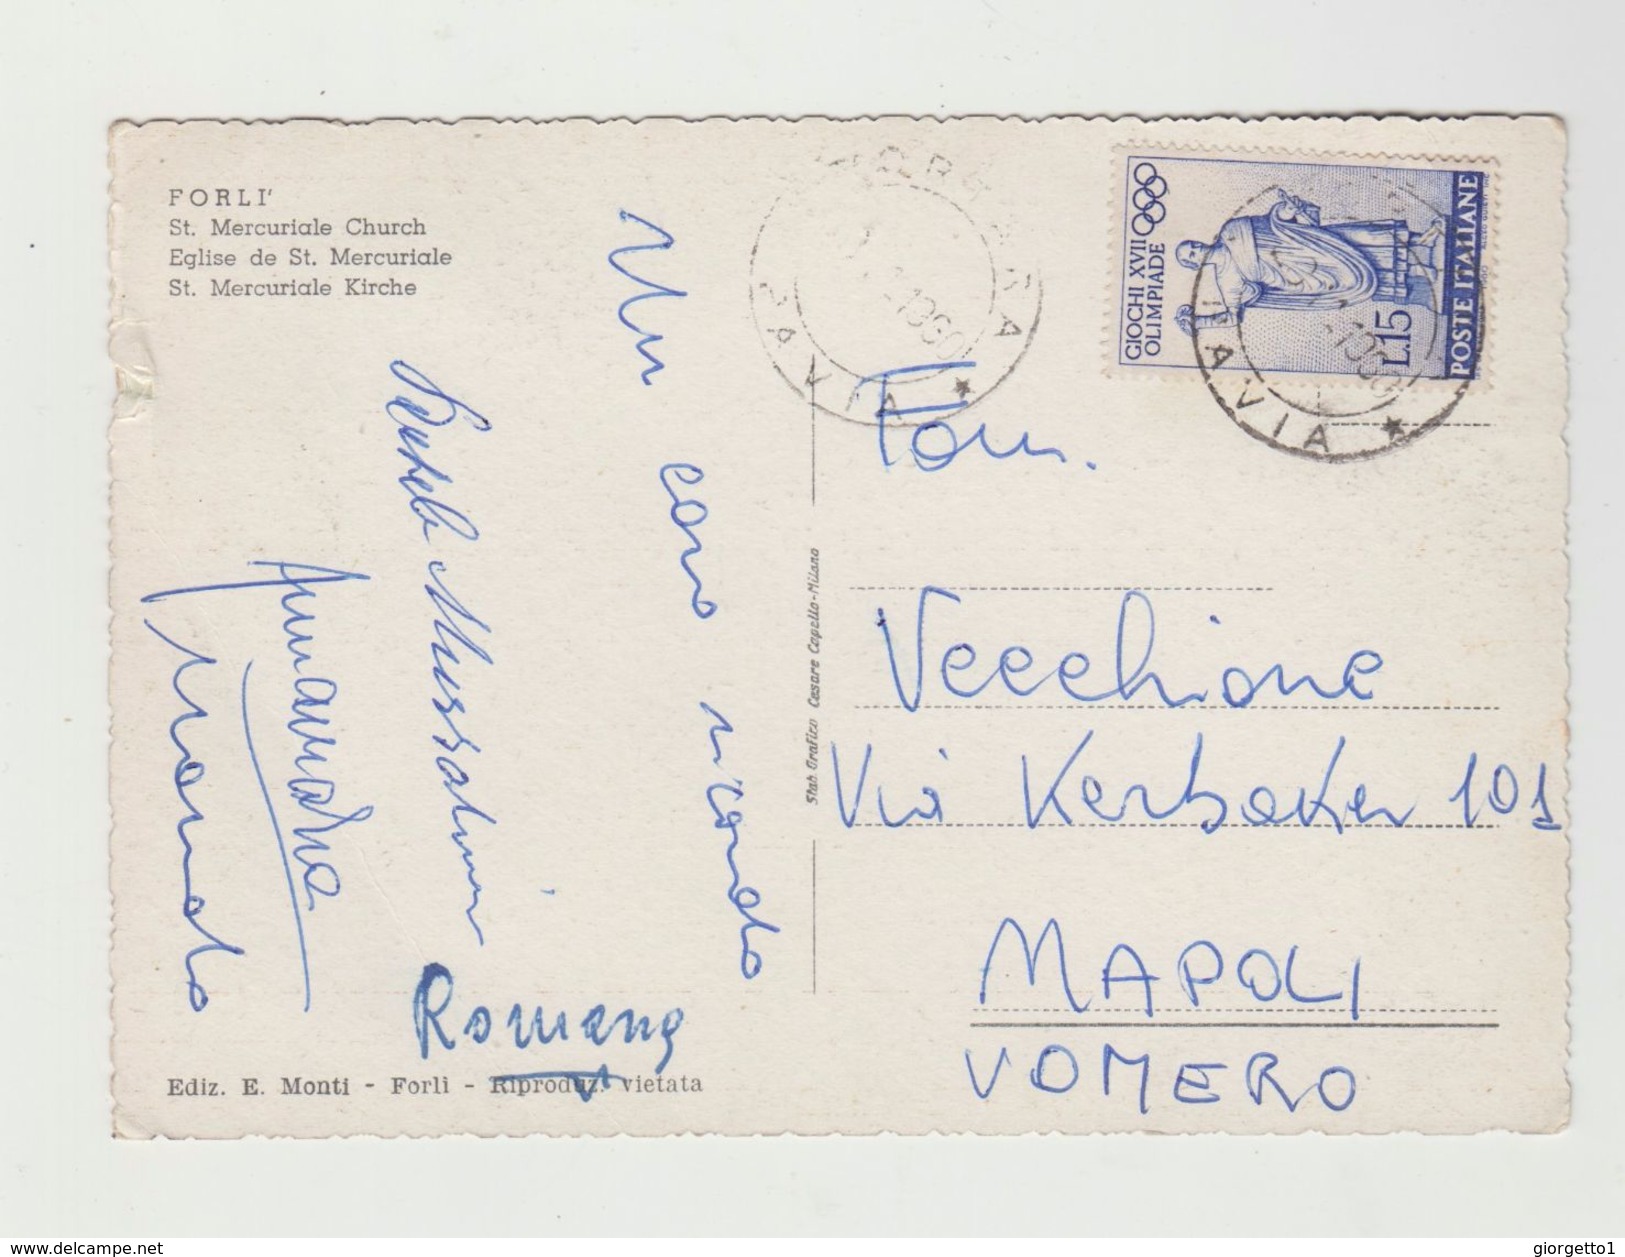 FORLI'
St. Mercuriale Church
Eglise de St. Mercuriale
St. Mercuriale Kirche
Un caro ricordo
Mussolini
Romano
Ediz. E. Monti - Forlì - Riproduz. vietata
Stab. Grafico Cesare Capello-Milano
PAVIA
1960
GIOCHI XVII
OLIMPIADE
L.15
POSTE ITALIANE
PAVIA
Fam.
Vecchione
Via Kerbaker 101
NAPOLI
VOMERO
www.delcampe.net
giorgetto1